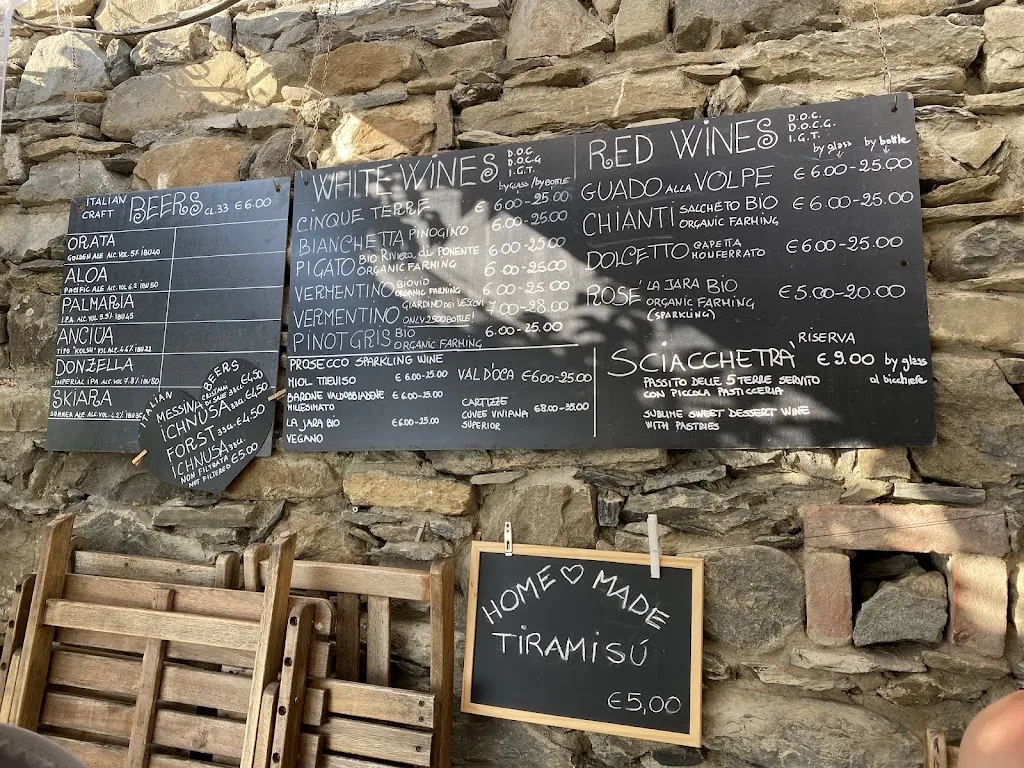 ITALIAN CRAFT BEERS CL.33 €6.00
ORATA
GOLDEN ALE ALC. VOL. 5% IBU 40
ALOA
PACIFIC ALE ALC. VOL. 6.2 IBU 50
PALMARIA
I.P.A. ALC. VOL. 5.5% IBU 45
ANCIUA
TIPO "KOLSH" VOL. ALC. 4.6% IBU 21
DONZELLA
IMPERIAL IPA ALC. VOL. 7.8% IBU 80
SKIARA
SUMMER ALE ALC. VOL. 4.2%
ITALIAN BEERS
MESSINA CRISTALLI DI SALE 33CL €4,50
ICHNUSA 33CL €4,50
FORST 33CL €4,50
ICHNUSA 33CL
NON FILTRATA
NOT FILTERED €5.00
WHITE WINES D.O.C. D.O.C.G I.G.T.
by GLASS / by BOTTLE
CINQUE TERRE € 6.00-25.00
BIANCHETTA PINOGINO 6.00-25.00
PIGATO BIO RIVIERA di PONENTE ORGANIC FARMING 6.00-25.00
VERMENTINO BIOVIO ORGANIC FARMING 6.00-25.00
VERMENTINO GIARDINO DEI VESCOVI ONLY 2500 BOTTLE! 7.00-28.00
PINOT GRIS BIO ORGANIC FARMING 6.00-25.00
PROSECCO SPARKLING WINE
MIOL TREVISO € 6.00-25.00
BARONE VALDOBBIADENE MILLESIMATO € 6.00-25.00
LA JARA BIO VEGANO € 6.00-25.00
VAL D'OCA €6.00-25.00
CARTIZZE
CUVEE VIVIANA €8.00-35.00
SUPERIOR
RED WINES D.O.C. D.O.C.G. I.G.T.
by glass by bottle
GUADO ALLA VOLPE € 6.00-25.00
CHIANTI SALCHETO BIO ORGANIC FARMING € 6.00-25.00
DOLCETTO CAPETTA MONFERRATO € 6.00-25.00
ROSE' LA JARA BIO ORGANIC FARMING (SPARKLING) € 5.00-20.00
RISERVA
SCIACCHETRA' € 9.00 by glass
al bicchiere
PASSITO DELLE 5 TERRE SERVITO
CON PICCOLA PASTICCERIA
SUBLIME SWEET DESSERT WINE
WITH PASTRIES
HOME ♡ MADE
TIRAMISÚ
€5,00